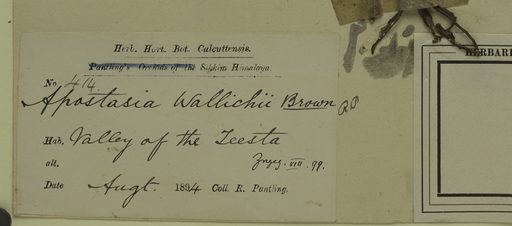 Herb. Hort. Bot. Calcuttensis.
Pantling's Orchids of the Sikkim Himalaya.
No. 474
Apostasia Wallichii Brown
Hab. Valley of the Teesta
alt.
VIII. 99.
Date Augt. 1894 Coll. R. Pantling.
HERBARI